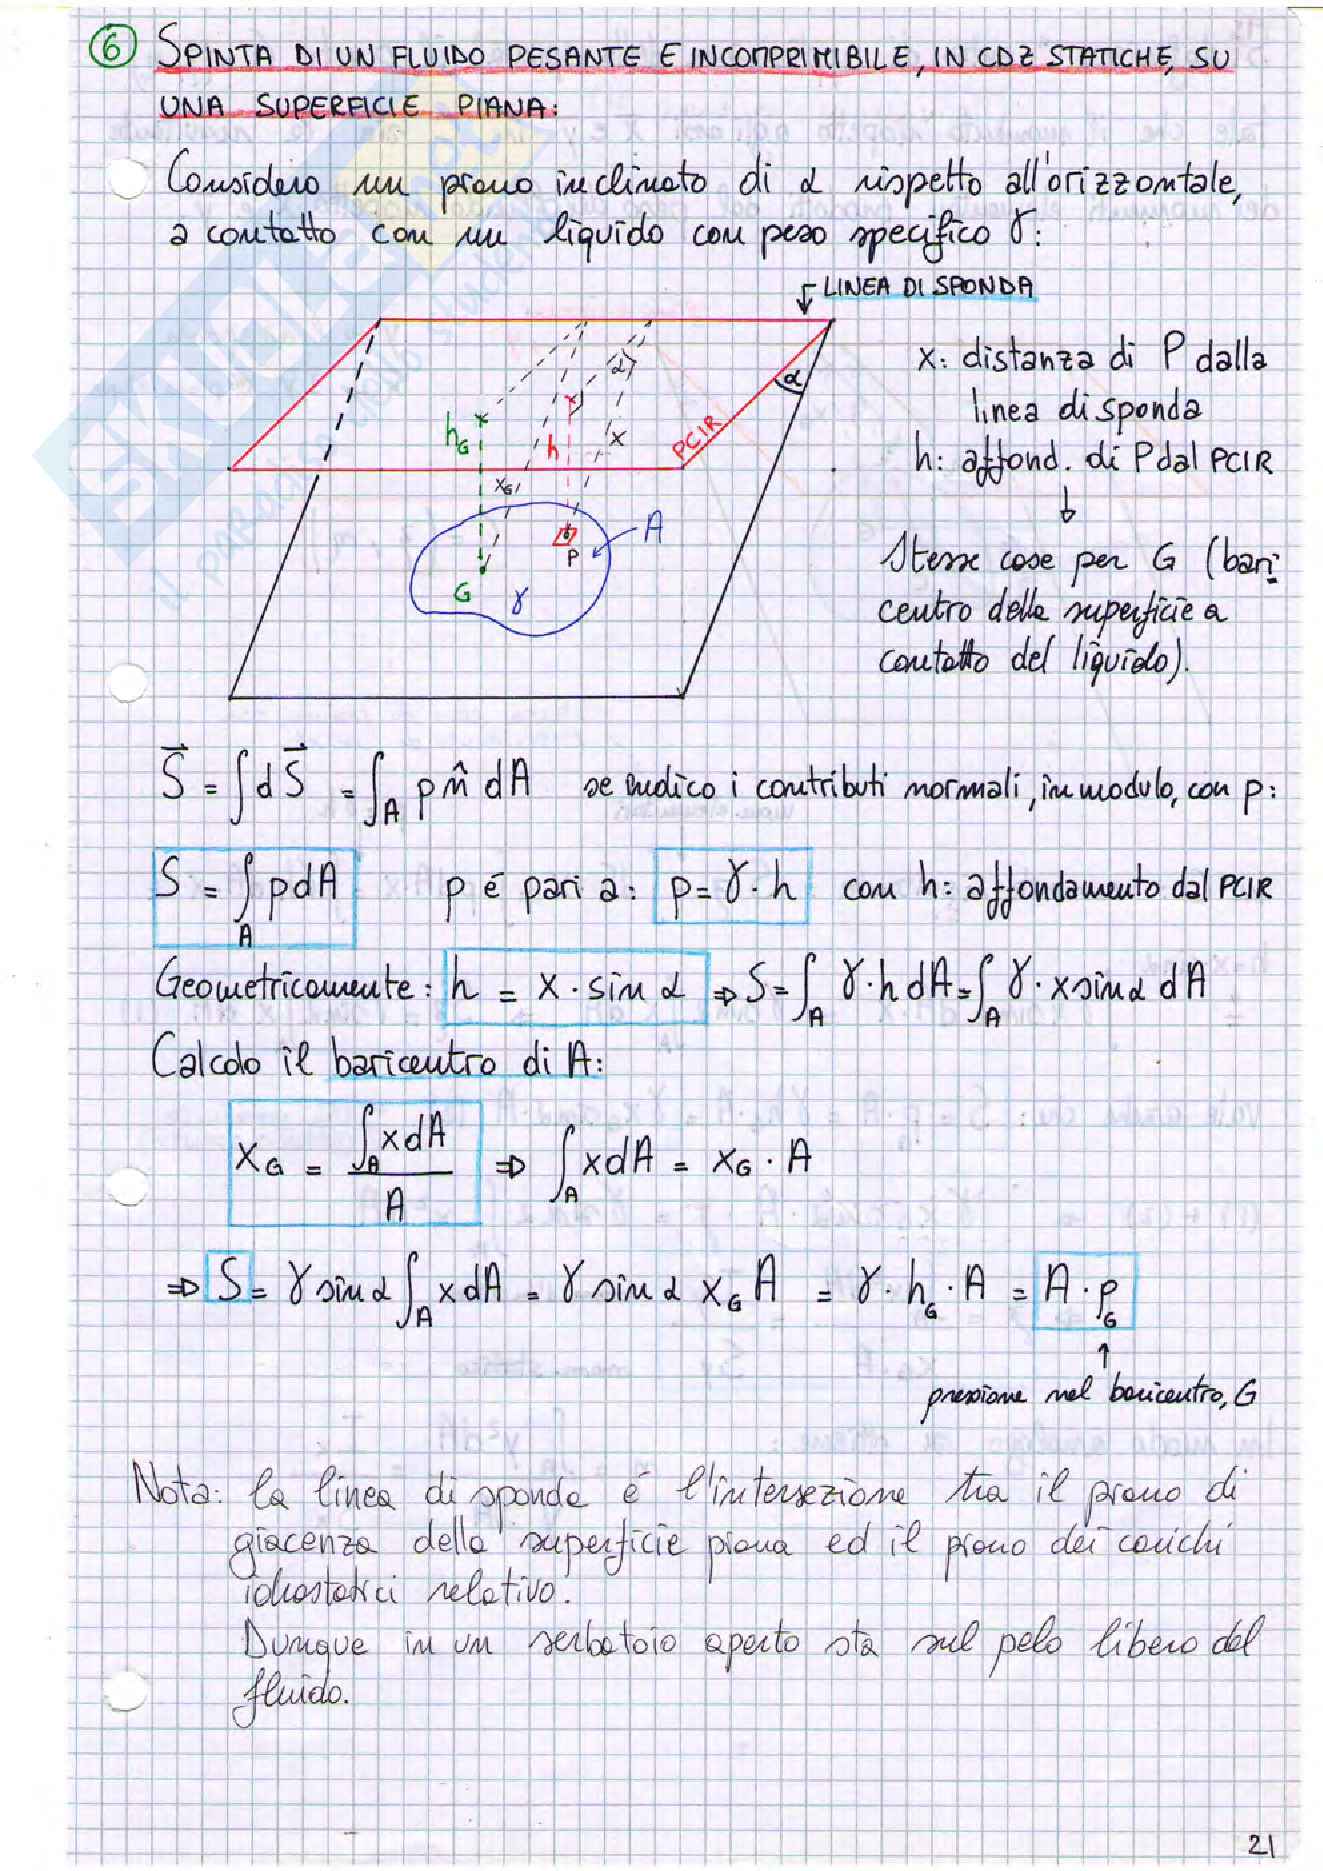 6 SPINTA DI UN FLUIDO PESANTE E INCOMPRIMIBILE, IN CDZ STATICHE, SU
UNA SUPERFICIE PIANA:
Considero un piano inclinato di α rispetto all'orizzontale,
a contatto con un liquido con peso specifico γ:
LINEA DI SPONDA
x: distanza di P dalla
linea di sponda
h: affond. di P dal PCIR
↓
Stesse cose per G (bari
centro della superficie a
contatto del liquido).
α
PCIR
α
hG
h
x
xG
A
P
G
γ
S⃗ = ∫dS⃗ = ∫_A p n̂ dA se indico i contributi normali, in modulo, con p:
S = ∫_A p dA p é pari a: p = γ · h con h: affondamento dal PCIR
Geometricamente: h = x · sin α ⇒ S = ∫_A γ · h dA = ∫_A γ · x sin α dA
Calcolo il baricentro di A:
x_G = ∫_A x dA / A ⇒ ∫_A x dA = x_G · A
⇒ S = γ sin α ∫_A x dA = γ sin α x_G A = γ · h_G · A = A · p_G
↑
pressione nel baricentro, G
Nota: la linea di sponda é l'intersezione tra il piano di
giacenza della superficie piana ed il piano dei carichi
idrostatici relativo.
Dunque in un serbatoio aperto sta sul pelo libero del
fluido.
21
SKUOLA.net
il paradiso dello studente